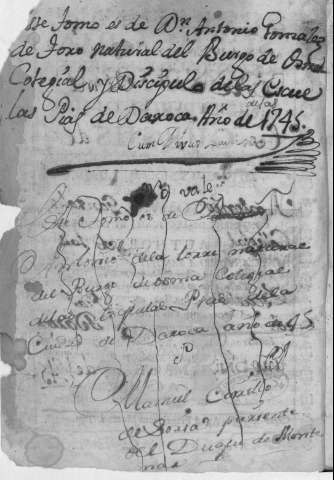 este tomo es de Dn Antonio Gonzalez
de Toro natural del Burgo de Osma
Colegial y Discipulo de las Escue
las Pias de Daroca Año de 1745.
No vale
Este Tomo es de
Antonio de la torre natural
del Burgo de osma Colegial
de las Escuelas Pias de la
Ciudad de Daroca año de 45
Manuel
de pariente
del Duque de Monte
mar